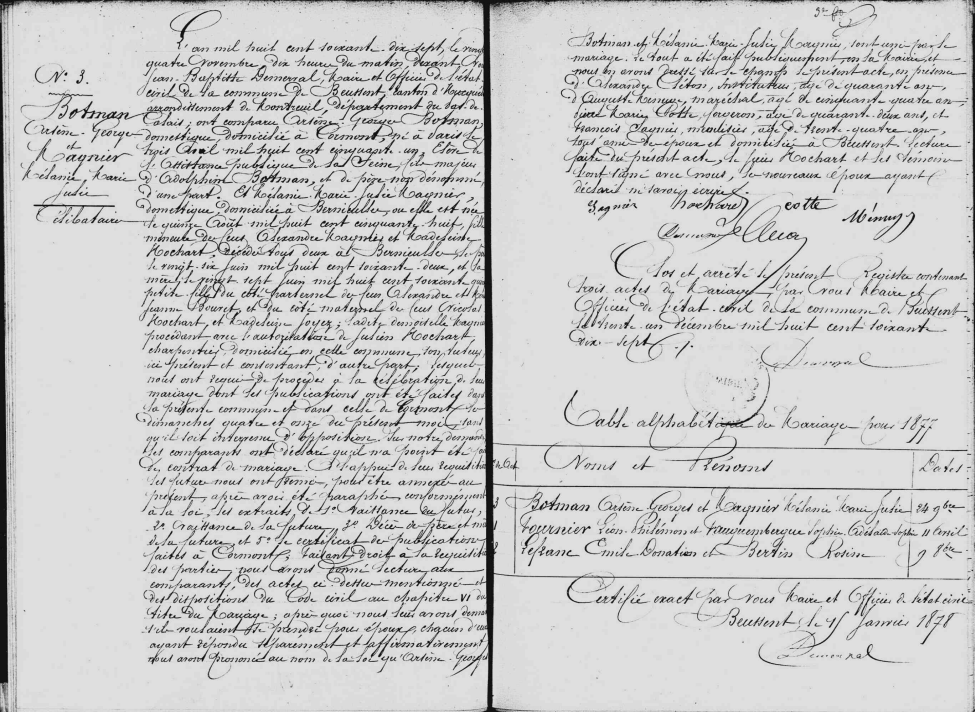 N° 3.
Botman
Arsène-George
et
Magnier
Mélanie Marie
Julie
Célibataire
L'an mil huit cent soixante dix sept, le vingt
quatre novembre dix heure du matin, devant nous
Jean-Baptiste Demerval Maire et Officier de l'état
civil de la commune de Beussent, canton d'Hucqu
arrondissement de Montreuil, département du Pas-de-
Calais; ont comparu Arsène-George Botman,
domestique domicilié à Cormont, né à Paris le
trois Avril mil huit cent cinquante un, Elève de
l'Assistance publique de la Seine fils majeur
d'Adolphine Botman, et de père non dénommé,
d'une part. Et Mélanie Marie Julie Magnier,
domestique, domiciliée à Bernieulles, où elle est née
le quinze Août mil huit cent cinquante huit, fille
mineure de feus Alexandre Magnier et Madeleine
Hochart, décédés tous deux à Bernieulles, le père
le vingt-six juin mil huit cent soixante-deux, et la
mère le vingt sept juin mil huit cent soixante
petite fille du côté paternel de feus Alexandre et
Jeanne Bouret et du côté maternel de feus Nicolas
Hochart, et Madeleine Joyez; ladite demoiselle Magnier
procédant avec l'autorisation de Julien Hochart,
charpentier, domicilié en cette commune, son tuteur,
ici présent et consentant, d'autre part, lesquels
nous ont requis de procéder à la célébration de leur
mariage dont les publications ont été faites dans
la présente commune et dans celle de Cormont, les
dimanches quatre et onze du présent mois, sans
qu'il soit intervenu d'opposition. Sur notre demande
les comparants ont déclaré qu'il n'a point été
de contrat de mariage. A l'appui de leur réquisition
les futurs nous ont remis, pour être annexé au
présent, après avoir été paraphé conformément
à la loi, les extraits, de 1° Naissance du futur,
2° Naissance de la future, 3° Décès de père et
de la future, et 5° le certificat de publication
faites à Cormont; faisant droit à la réquisition
des parties, nous avons donné lecture aux
comparants, des actes ci-dessus mentionnés et
des dispositions du Code civil au chapitre VI du
titre du Mariage; après quoi nous leur avons demandé
s'ils voulaient se prendre pour époux, chacun d'eux
ayant répondu séparément et affirmativement
nous avons prononcé au nom de la loi qu'Arsène-George
Botman et Mélanie Marie-Julie Magnier, sont unis par le
mariage. Le tout a été fait publiquement en la Mairie, et
nous en avons dressé sur le champ le présent acte, en présence
d'Alexandre Séton, Instituteur, âgé de quarante ans,
d'Auguste Menuge, maréchal, âgé de cinquante quatre ans,
Marie Cotte, forgeron, âgé de quarante deux ans, et
François Magnier, âgé de trente-quatre ans,
tous amis des époux et domiciliés à Beussent lecture
faite du présent acte, le sieur Hochart et les témoins
l'ont signé avec nous, les nouveaux époux ayant
déclaré ne savoir écrire.
hochard cotte
Clos et arrêté le présent Registre contenant
trois actes de Mariage par Nous Maire et
Officier de l'état-civil de la commune de Beussent
le trente un décembre mil huit cent soixante
dix-sept
Demerval
Table alphabétique du Mariage pour 1877
Noms et Prénoms Dates
3 Botman Arsène Georges et Magnier Mélanie Marie Julie 24 9bre
1 Fournier Léon Philémon et Fauquembergue Sophie Adélaïde 11 avril
2 Emile Donation et Bertin Rosine 9 8bre
Certifié exact par Nous Maire et Officier de l'état civil
Beussent, le 15 Janvier 1878
Demerval